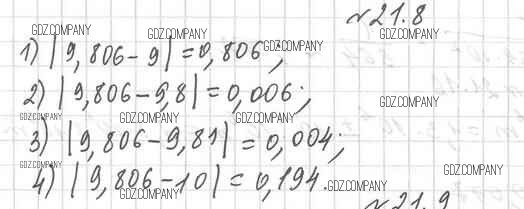 №21.8
GDZ.COMPANY GDZ.COMPANY GDZ.COMPANY
1) |9,806-9|=0,806;
GDZ.COMPANY
2) |9,806-9,8|=0,006;
GDZ.COMPANY GDZ.COMPANY
GDZ.COMPANY GDZ.COMPANY GDZ.COMPANY
3) |9,806-9,81|=0,004;
GDZ.COMPANY GDZ.COMPANY
4) |9,806-10|=0,194.
GDZ.COMPANY GDZ.COMPANY
№21.9